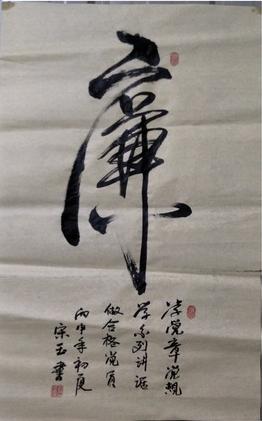 廉
学党章党规
学系列讲话
做合格党员
丙申年初夏
宋玉书